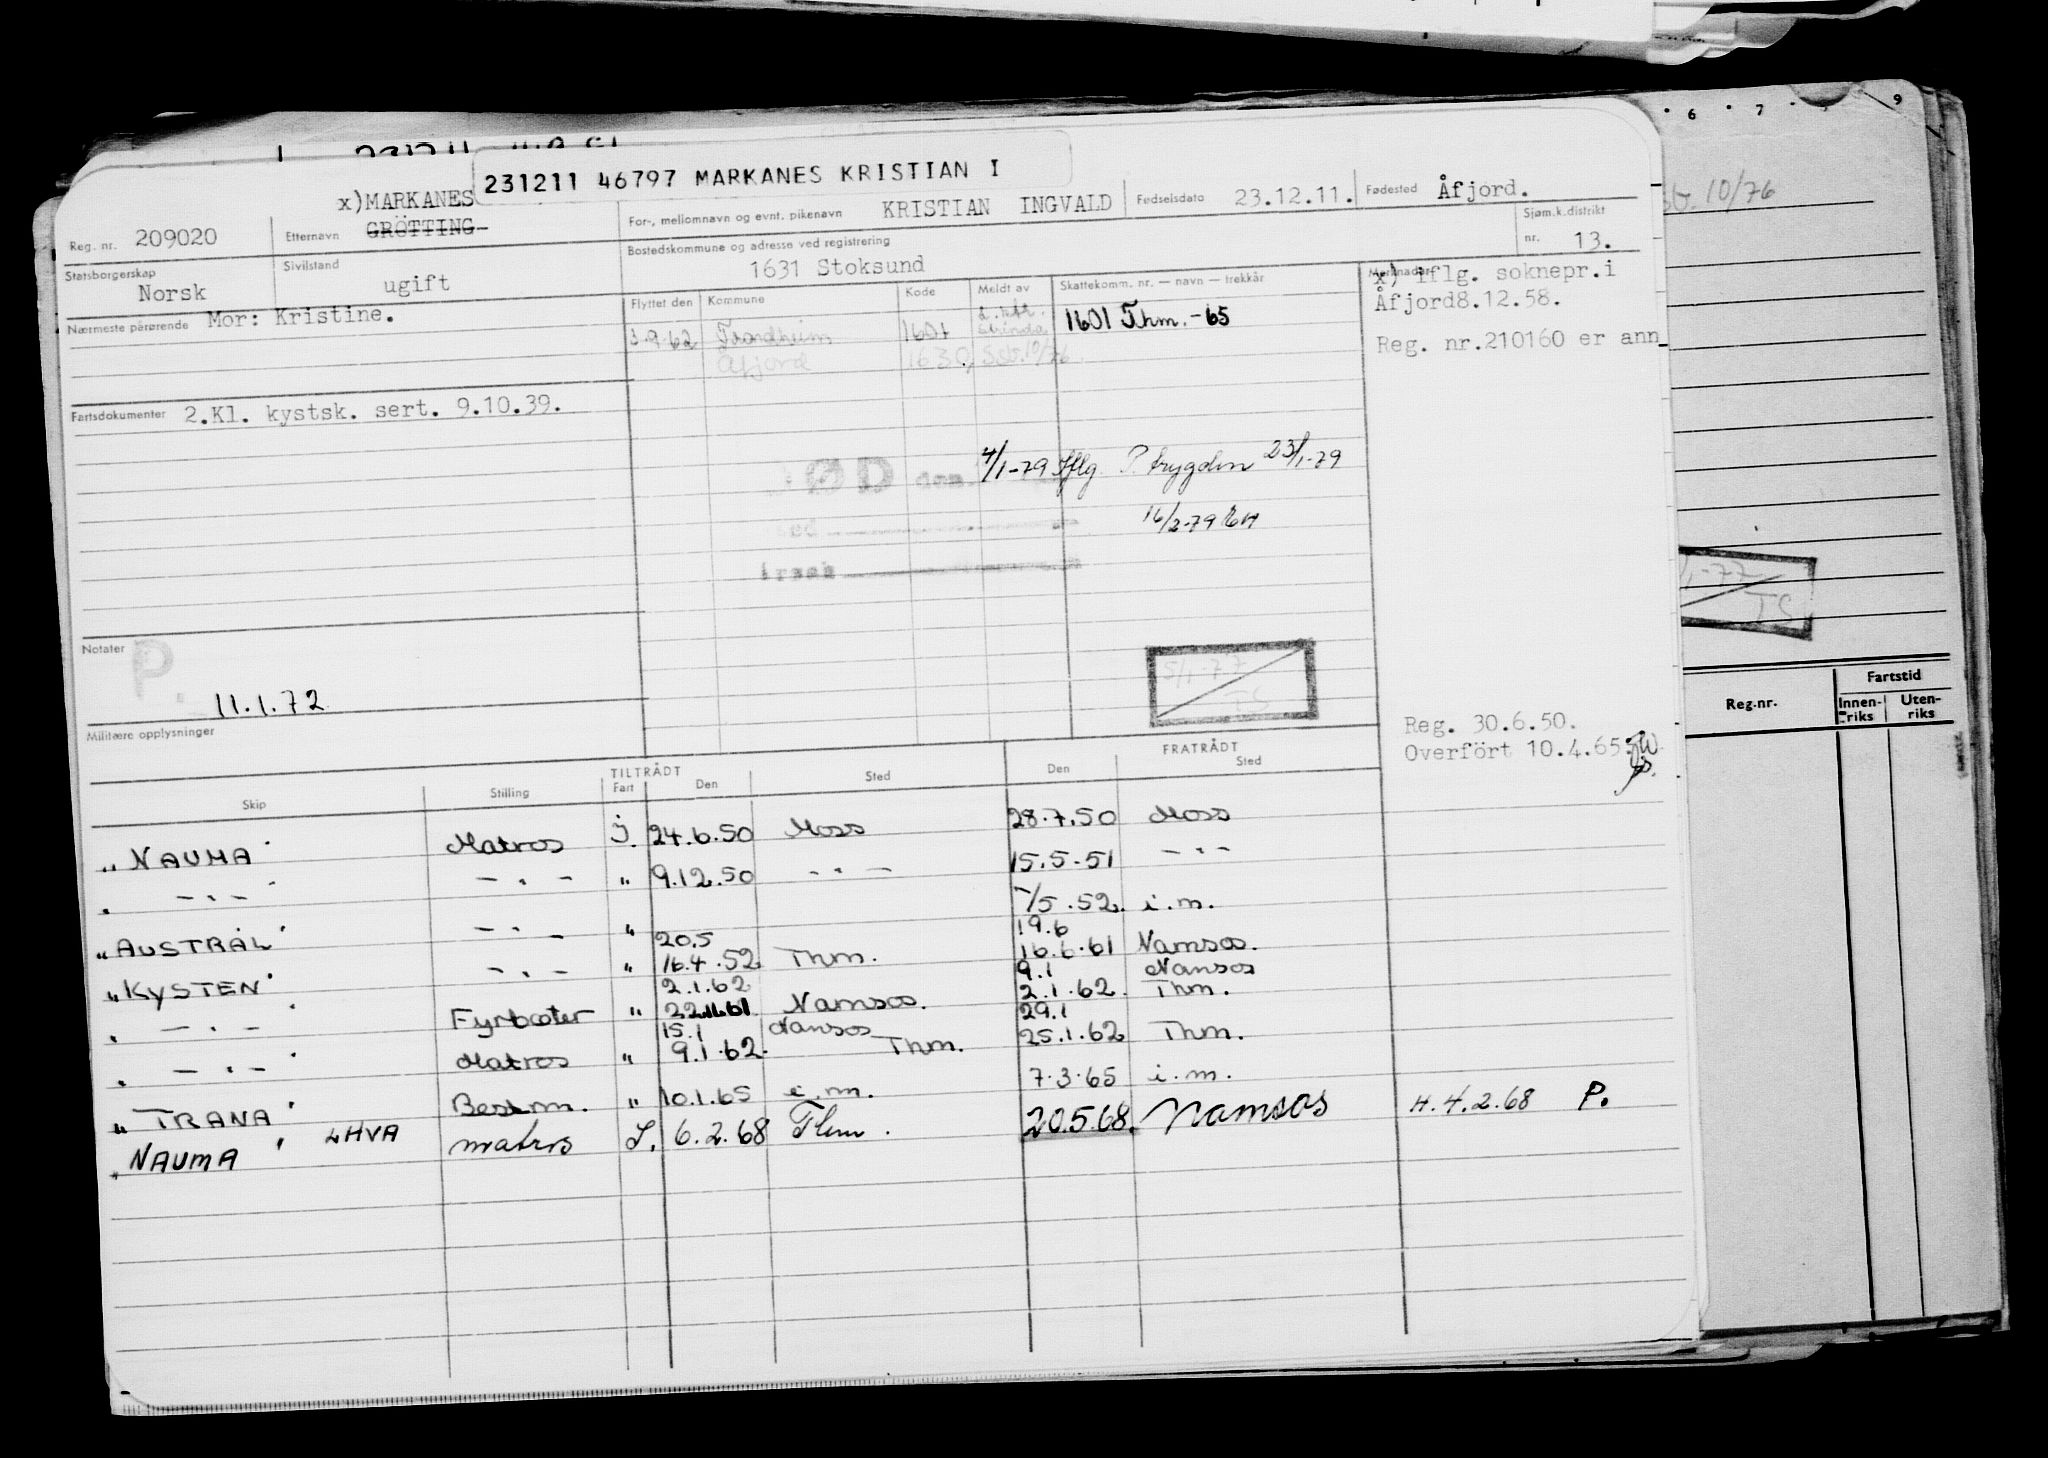 231211 46797 MARKANES KRISTIAN I
x)MARKANES
Reg. nr. 209020 Etternavn GRÖTTING
For-, mellomnavn og evnt. pikenavn KRISTIAN INGVALD Fødselsdato 23.12.11. Fødested Åfjord.
Statsborgerskap Norsk Sivilstand ugift
Bostedskommune og adresse ved registrering 1631 Stoksund
Sjøm.k.distrikt nr. 13.
Nærmeste pårørende Mor: Kristine.
Flyttet den Kommune Kode Meldt av Skattekomm. nr. — navn — trekkår
3.9.62 Trondheim 1601 Strinda 1601 Thm.-65
Åfjord 1630, Sst. 10/76
Merknader
x) iflg. soknepr.i
Åfjord8.12.58.
Reg. nr.210160 er ann
Fartsdokumenter 2.Kl. kystsk. sert. 9.10.39.
ØD den 4/1-79 Iflg P. trygden 23/1-79
16/2-79
Notater P.
11.1.72
5/1-77
TS
Militære opplysninger
Reg. 30.6.50.
Overfört 10.4.65
TILTRÅDT FRATRÅDT
Skip Stilling Fart Den Sted Den Sted
"NAUMA" Matros J. 24.6.50 Moss 28.7.50 Moss
" — " — — " — " 9.12.50 — " — 15.5.51 — " —
-/5.52. i.m.
"AUSTRAL" — " — " 20.5 19.6
"KYSTEN" — " — " 16.4.52 Thm. 16.6.61 Namsos.
2.1.62 9.1 Namsos
" — " — Fyrbøter " 22.11.61 Namsos. 2.1.62. Thm.
15.1 Namsos 29.1
" — " — Matros " 9.1.62. Thm. 25.1.62 Thm.
"TRANA" Bestm. " 10.1.65 i.m. 7.3.65 i.m.
"NAUMA" LHVA matros J. 6.2.68 Thm. 20.5.68. Namsos H.4.2.68 P.
6 7 9
10/76
1-77
TS
Reg.nr.
Fartstid
Innen-riks
Uten-riks